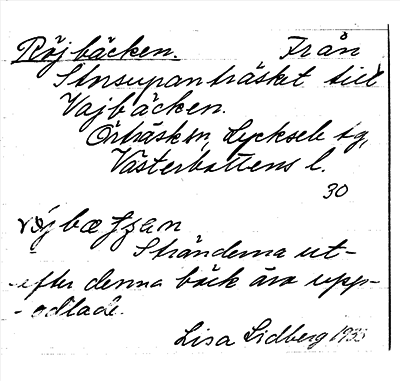 Röjbäcken. Från
Stnsupanträsket till
Vajbäcken.
Örträsk sn, Lycksele tg,
Västerbottens l.
30
Stränderna ut-
efter denna bäck äro upp-
odlade.
Lisa Lidberg 1935